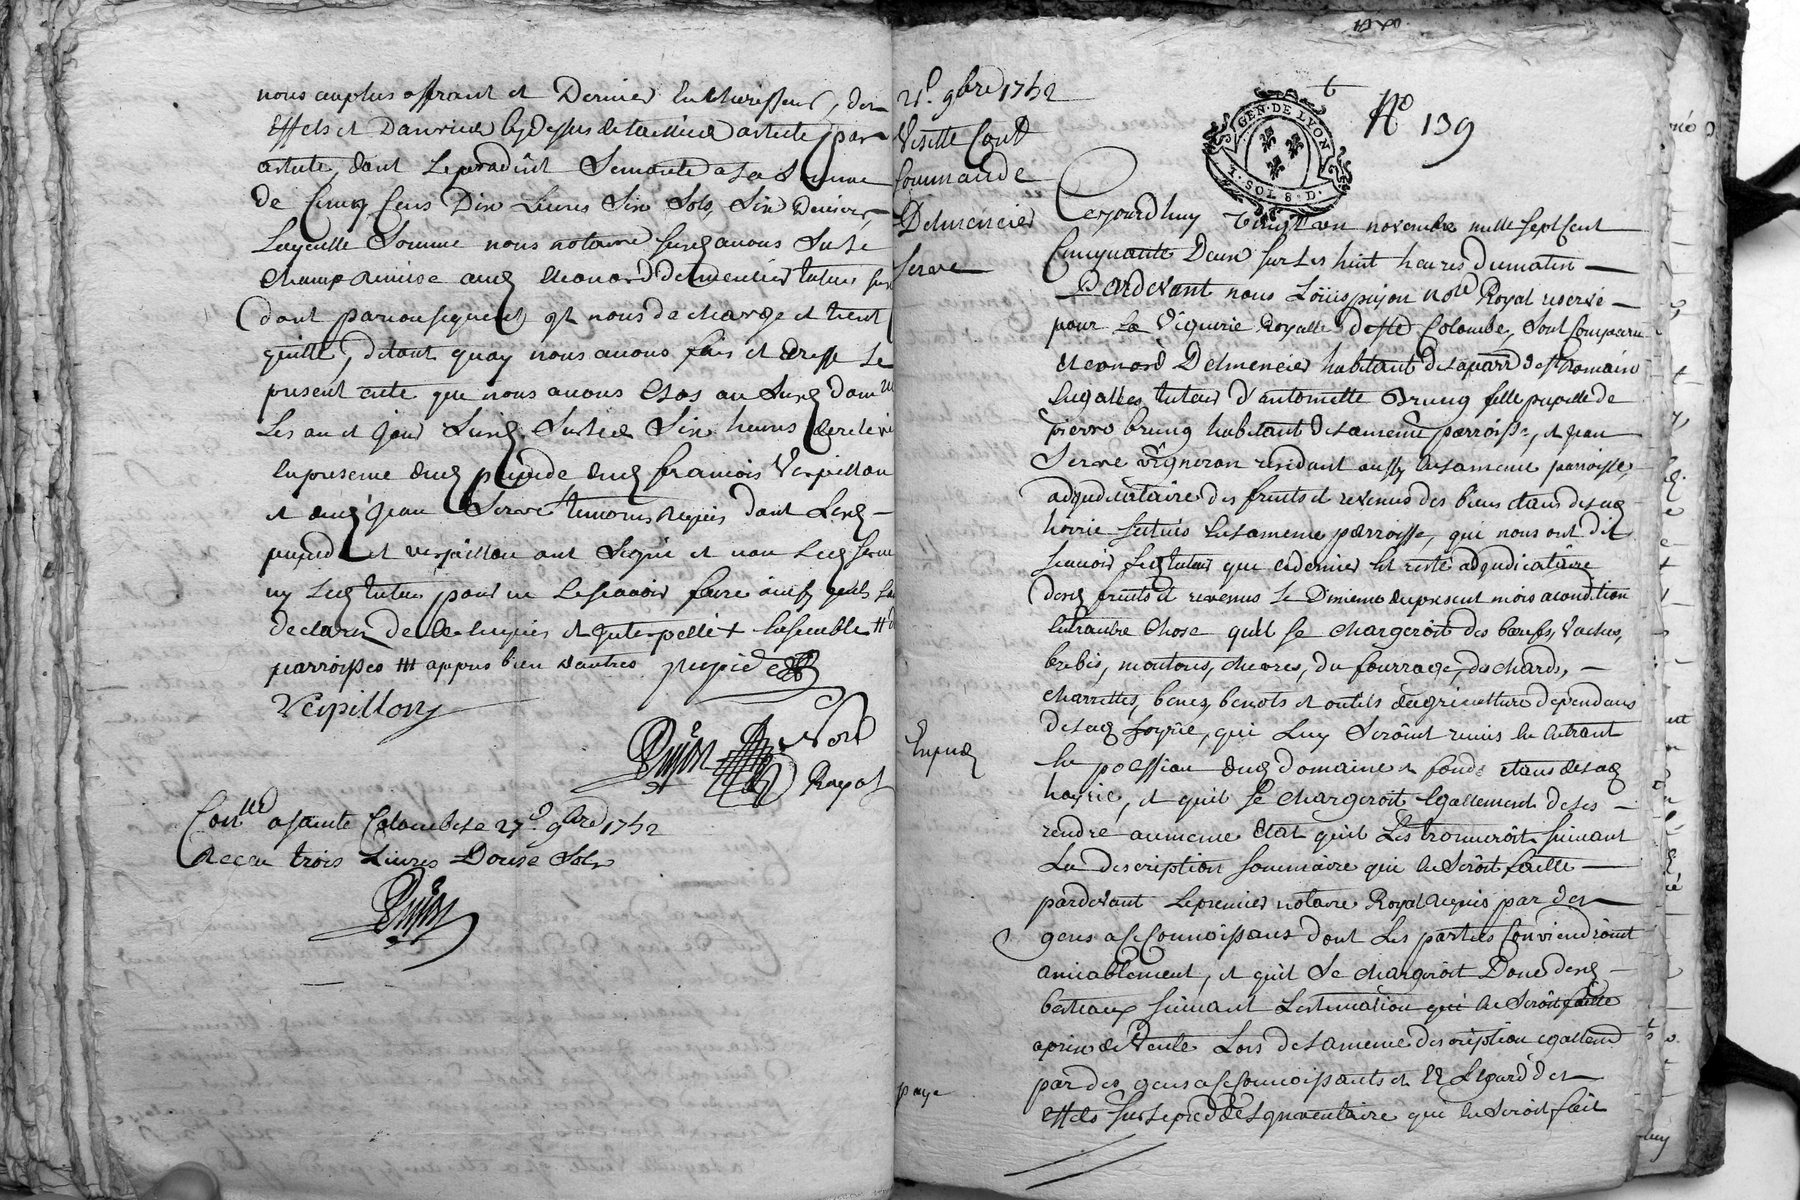 nous au plus offrant et Dernier Encherisseur, des
Effets et Danrées cy Dessus detaillées article par
article, dont Le produit Se monte a la Somme
de Cinq Cens Dix Livres Six Sols, Six Deniers
Laquelle Somme nous notaire susd avons Sur le
champ remise aud Leonard Delmencier tuteur sus
dont par consequent il nous decharge et tient
quitte, de tout quoy nous avons fait et dressé Le
present acte que nous avons Clos au Susd
Les an et Jour Susd. Sur les Six heures
En presence dud pupide dud francois Verpillon
et dud Jean Serve temoins requis dont Lesd
pupide et verpillon ont Signé et non Led Serve
ny Led tuteur pour ne Le scavoir faire ainsy quils
declaré de ce enquis et Interpellé + Ensemble
parroisses ### appres bien d'autres pupide
Verpillon
Pujon No.re
Royal
Con.llé a sainte Colombe Le 27.e 9bre 1752
Recu trois Livres Douze Sols
Pujon
21.e 9bre 1752
Visitte Cont
Commande
Delmencier
Serve
GEN. DE LYON
1. SOL 8. D.
No 139
Cejourdhuy Vingt un novembre mille sept cent
Cinquante Deux sur Les huit heures du matin
Pardevant nous Loüis pujon no.re Royal reservé
pour La Viguerie Royalle de Ste Colombe, sont Comparu
Leonard Delmencier habitant de la parr de St Romain
Engallees, tuteur d'antoinette Brung fille pupille de
pierre brung habitant de la meme parroisse, et Jean
Serve vigneron residant aussy en la meme parroisse,
adjudicataire des fruits et revenus des biens etans de lad
hoirie scitués en la meme parroisse, qui nous ont dit
scavoir Led tuteur que ce dernier est resté adjudicataire
desd fruits et revenus Le Dixieme du present mois a condition
Entrautre Chose quil se chargeroit des bœufs, Vaches,
brebis, moutons, chevres, du fourrage, des chards,
charrettes, benes, benots et outils d'agriculture dependans
de lad hoyrie, qui Luy Seroint remis En Entrant
En poession dud domaine et fonds etans de lad
hoirie, et quil se chargeroit Egallement de les
rendre au meme Etat quil Les trouveroit suivant
La description sommaire qui En Seroit faitte
pardevant Le premier notaire Royal requis par des
gens a ce Connoissans dont Les parties Conviendroint
amiablement, et quil se chargeroit Donc desd
bestiaux suivant L'estimation qui En Seroit faitte
a prix de Vente Lors de la meme description egallem.t
par des gens a ce Connoissants et a L'Egard des
effets sur Le pied de L'Inventaire qui En Seroit fait